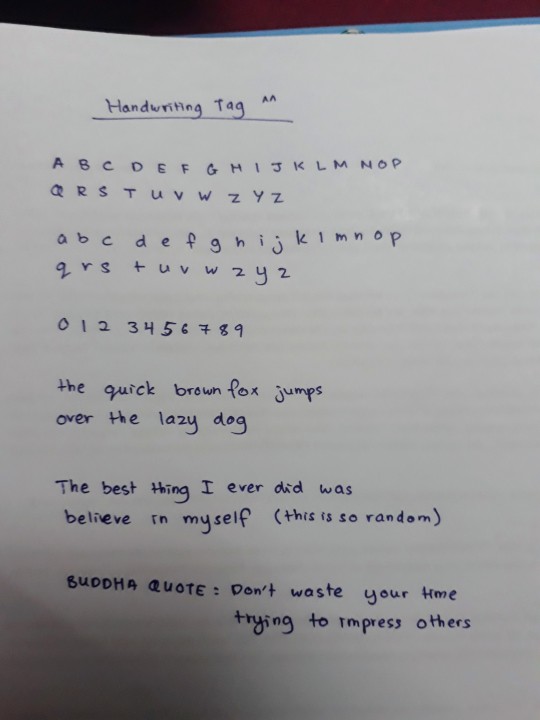 Handwriting Tag ^^
A B C D E F G H I J K L M N O P
Q R S T U V W Z Y Z
a b c d e f g h i j k l m n o p
q r s t u v w z y z
0 1 2 3 4 5 6 7 8 9
the quick brown fox jumps
over the lazy dog
The best thing I ever did was
believe in myself (this is so random)
BUDDHA QUOTE : Don't waste your time
trying to impress others